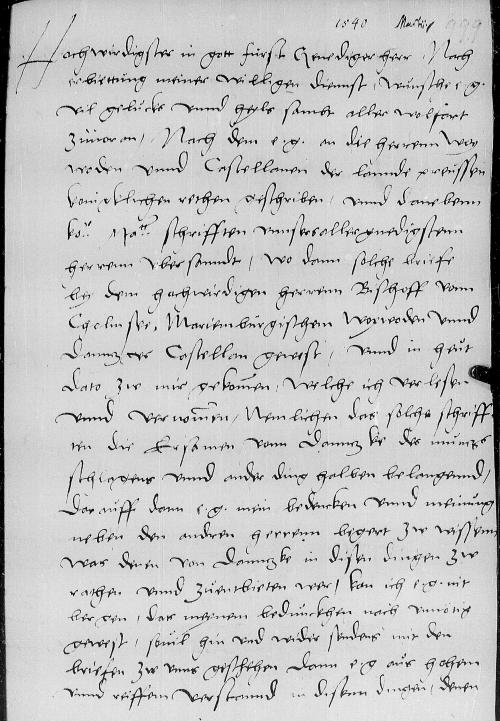 1540 Martij 999
Hochwirdigster in gott furst Genediger herr, Nach
erbiettung meiner willigen dienst, wunsche e. g.
vil gelucks vnnd heyls sambt aller wolfart
zuuoran, Nach dem e. g. an die herrenn Woy
woden vnnd Castellanen der lannde preussen
konigklichen rethen geschriben, vnnd danebenn
ko: Mat: schrifften vnnsers allergnedigstenn
herrenn vbersanndt, wo dann solche brieffe
bei dem hochwirdigen herrenn Bischoff vonn
Cholmsee, Marienburgischem Woywoden vnnd
Danntzger Castellan gewest, vnnd in heut
dato zw mir gekomen, welche ich verlesen
vnnd vernomen, Nemlichen das solche schriff
ten die Ersamen vonn Danntzke des muntz
schlagens vnnd ander ding halben belangennd,
Darauff dann e. g. mein bedencken vnnd meinung
neben den andren herrenn begert zw wissenn
was denen von Danntzke in disen dingen zw
rathen vnnd zuentbieten wer, kan ich e. g. nit
bergen, das meynem bedunckhen nach vnnotig
gewest, souil hin vnd wider sendens mit den
brieffen zw vnns geschehen dann e g aus hohem
vnnd reiffem verstannd in disenn dingen, denen